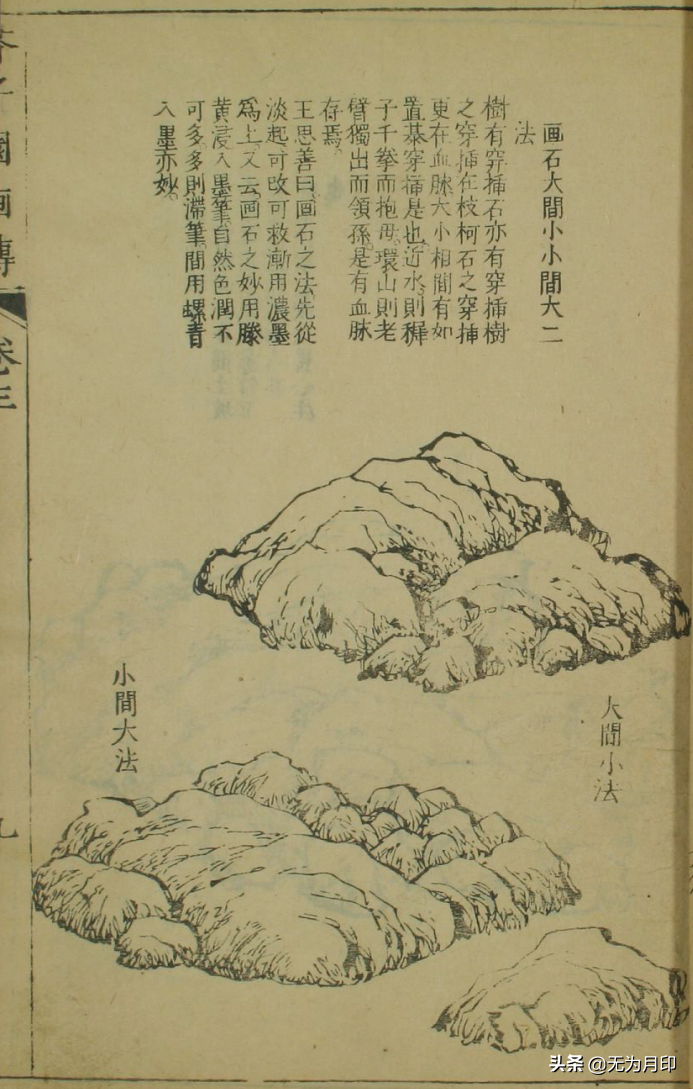 画石大間小小間大二
法
樹有穿揷石亦有穿揷樹
之穿揷在枝柯石之穿揷
更在血脉大小相間有如
置棊穿揷是也近水則稺
子千拳而抱母環山則老
臂獨出而領孫是有血脉
存焉
王思善曰画石之法先從
淡起可改可救漸用濃墨
爲上又云画石之妙用滕
黄浸入墨筆自然色潤不
可多多則滯筆間用螺青
入墨亦妙
大間小法
小間大法
芥子園畫傳
卷三
九
头条 @无为月印